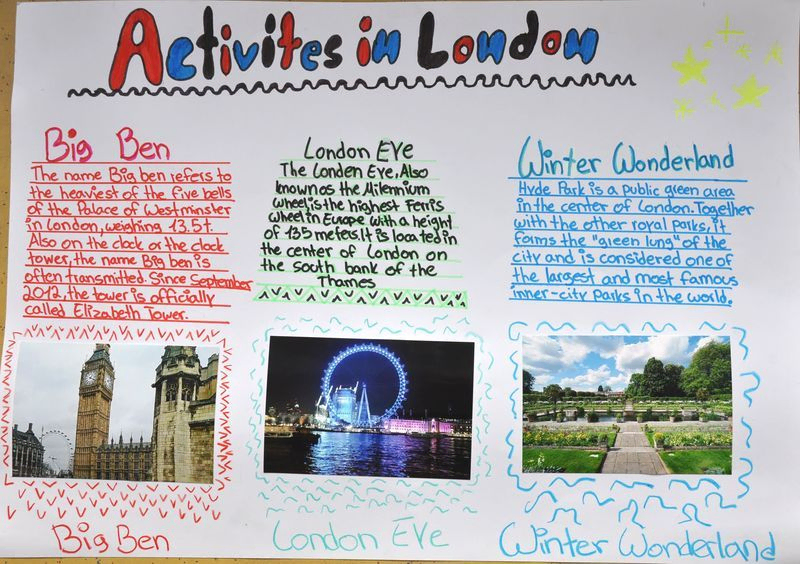 Activites in London
Big Ben
The name Big ben refers to
the heaviest of the five bells
of the Palace of Westminster
in London, weighing 13.5t.
Also on the clock or the clock
tower, the name Big ben is
often transmitted. Since September
2012, the tower is officially
called Elizabeth Tower.
London EYe
The Londen Eye, Also
known as the Milennium
wheel, is the highest Ferris
wheel in Europe with a height
of 135 meters. It is located in
the center of London on
the south bank of the
Thames
Winter Wonderland
Hyde Park is a public green area
in the center of London. Together
with the other royal parks, it
forms the "green lung" of the
city and is considered one of
the largest and most famous
inner-city parks in the world.
Big Ben
London EYe
Winter Wonderland